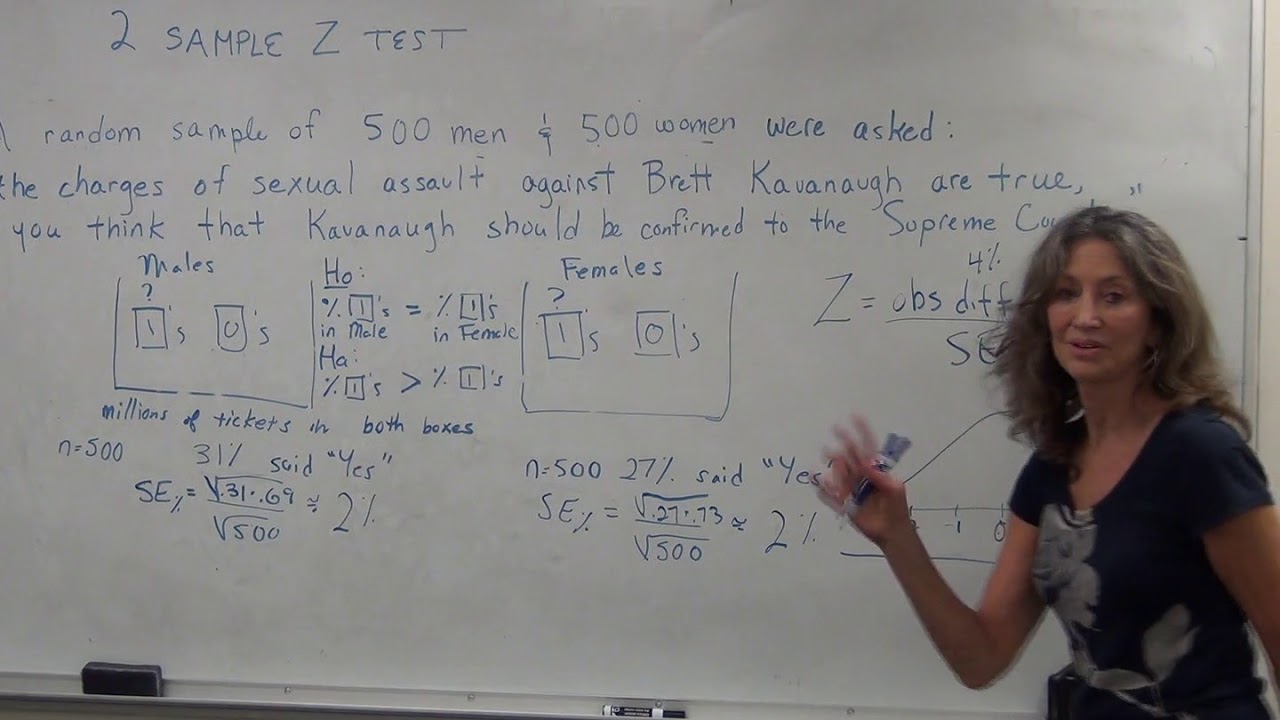 2 SAMPLE Z TEST
random sample of 500 men & 500 women were asked:
the charges of sexual assault against Brett Kavanaugh are true,
you think that Kavanaugh should be confirmed to the Supreme "
Males
?
1's 0's
Ho:
% 1's = % 1's
in Male in Female
Ha:
% 1's > % 1's
Females
?
1's 0's
millions of tickets in both boxes
n=500 31% said "Yes"
SE% = √.31·.69 / √500 ≅ 2%
n=500 27% said "Yes
SE% = √.27·.73 / √500 ≅ 2%
4%
Z = obs diff
SE
-1 0